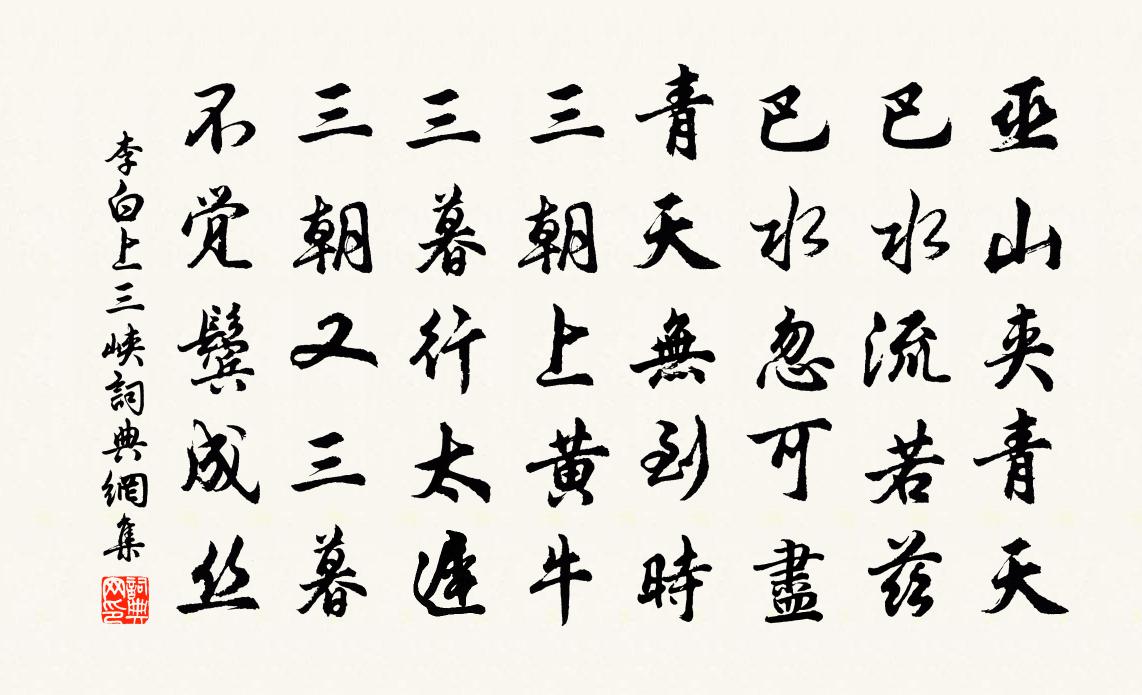 巫山夾青天
巴水流若茲
巴水忽可盡
青天無到時
三朝上黄牛
三暮行太遲
三朝又三暮
不觉鬢成丝
李白上三峽詞典網集
詞典网印